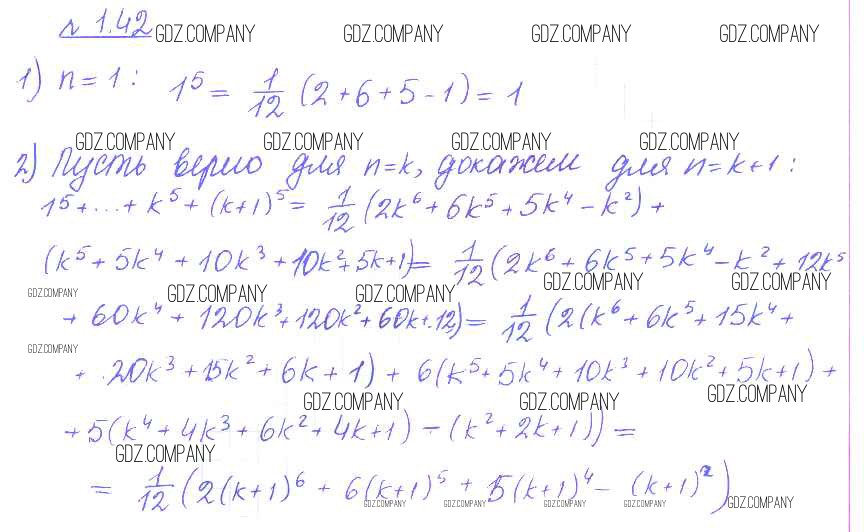 № 1.42 GDZ.COMPANY GDZ.COMPANY GDZ.COMPANY GDZ.COMPANY
1) n = 1 : 1⁵ = 1/12 (2 + 6 + 5 - 1) = 1
GDZ.COMPANY GDZ.COMPANY GDZ.COMPANY GDZ.COMPANY
2) Пусть верно для n=k, докажем для n=k+1 :
1⁵ + ... + k⁵ + (k+1)⁵ = 1/12 (2k⁶ + 6k⁵ + 5k⁴ - k²) +
(k⁵ + 5k⁴ + 10k³ + 10k² + 5k + 1) = 1/12 (2k⁶ + 6k⁵ + 5k⁴ - k² + 12k⁵
GDZ.COMPANY GDZ.COMPANY GDZ.COMPANY GDZ.COMPANY GDZ.COMPANY
+ 60k⁴ + 120k³ + 120k² + 60k + 12) = 1/12 (2(k⁶ + 6k⁵ + 15k⁴ +
GDZ.COMPANY
+ 20k³ + 15k² + 6k + 1) + 6(k⁵ + 5k⁴ + 10k³ + 10k² + 5k + 1) +
GDZ.COMPANY GDZ.COMPANY GDZ.COMPANY
+ 5(k⁴ + 4k³ + 6k² + 4k + 1) - (k² + 2k + 1)) =
GDZ.COMPANY
= 1/12 (2(k+1)⁶ + 6(k+1)⁵ + 5(k+1)⁴ - (k+1)²)
GDZ.COMPANY GDZ.COMPANY GDZ.COMPANY GDZ.COMPANY GDZ.COMPANY